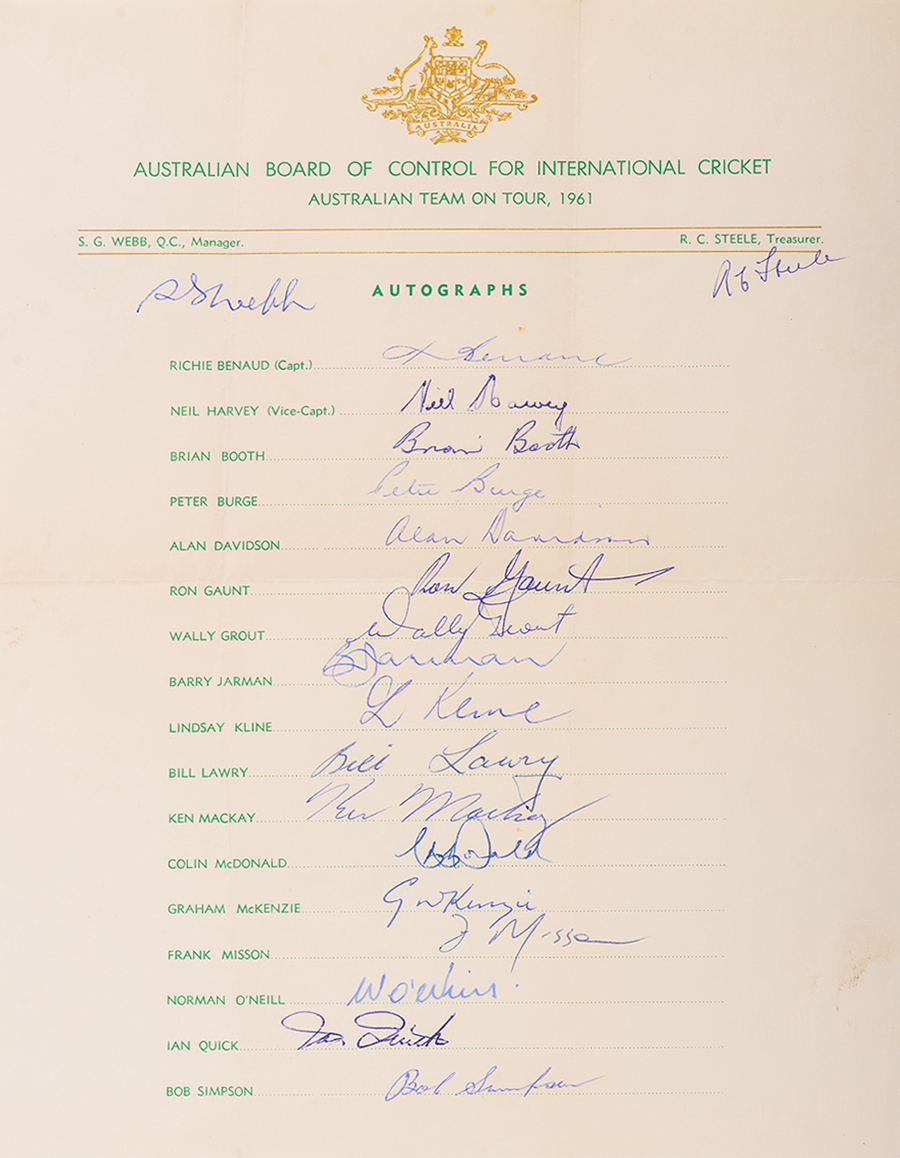 AUSTRALIA
AUSTRALIAN BOARD OF CONTROL FOR INTERNATIONAL CRICKET
AUSTRALIAN TEAM ON TOUR, 1961
S. G. WEBB, Q.C., Manager. R. C. STEELE, Treasurer.
S G Webb AUTOGRAPHS R C Steele
RICHIE BENAUD (Capt.) R Benaud
NEIL HARVEY (Vice-Capt.) Neil Harvey
BRIAN BOOTH Brian Booth
PETER BURGE Peter Burge
ALAN DAVIDSON Alan Davidson
RON GAUNT Ron Gaunt
WALLY GROUT Wally Grout
BARRY JARMAN B Jarman
LINDSAY KLINE L Kline
BILL LAWRY Bill Lawry
KEN MACKAY Ken Mackay
COLIN McDONALD C McDonald
GRAHAM McKENZIE G McKenzie
FRANK MISSON F Misson
NORMAN O'NEILL N O'Neill
IAN QUICK Ian Quick
BOB SIMPSON Bob Simpson